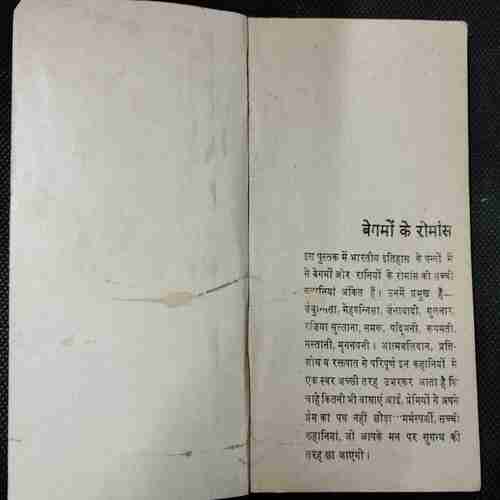 बेगमों के रोमांस
इस पुस्तक में भारतीय इतिहास के पन्नों में
से बेगमों और रानियों के रोमांस की सच्ची
कहानियां अंकित हैं। उनमें प्रमुख हैं—
जेबुन्निसा, मेहरुन्निसा, जेनाबादी, गुलनार,
रज़िया सुल्ताना, समरू, पद्मिनी, रूपमती,
मस्तानी, मृगनयनी। आत्मबलिदान, प्रति-
शोध व रक्तपात से परिपूर्ण इन कहानियों में
एक स्वर अच्छी तरह उभरकर आता है कि
चाहे कितनी भी बाधाएं आई, प्रेमियों ने अपने
प्रेम का पथ नहीं छोड़ा मर्मस्पर्शी, सच्ची
कहानियां, जो आपके मन पर सुगन्ध की
तरह छा जाएंगी।